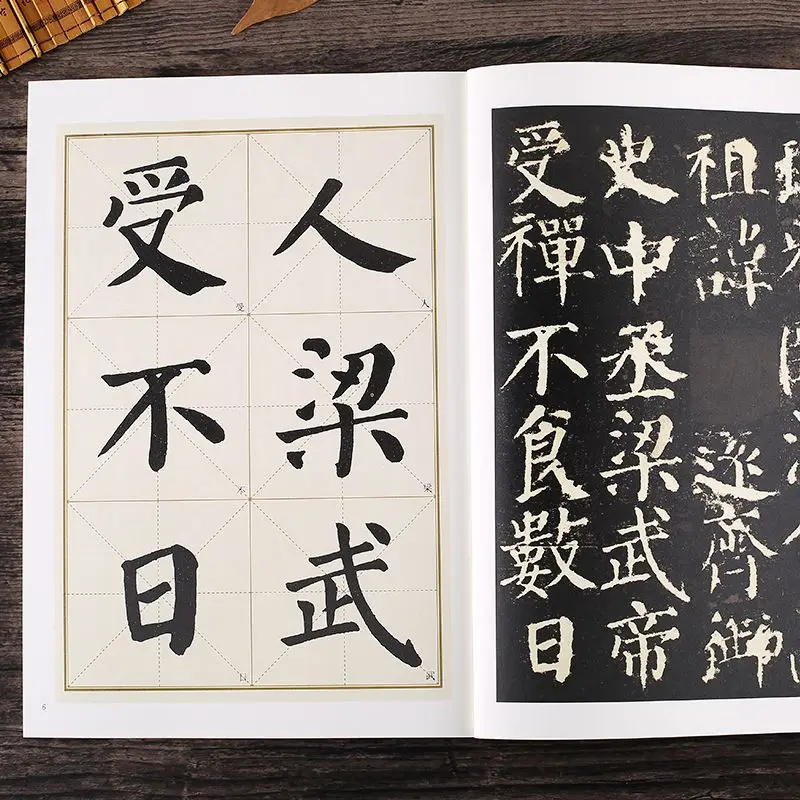 人梁武
人
梁
武
受不日
受
不
日
6
祖諱
遠齊御
史中丞梁武帝
受禪不食數日